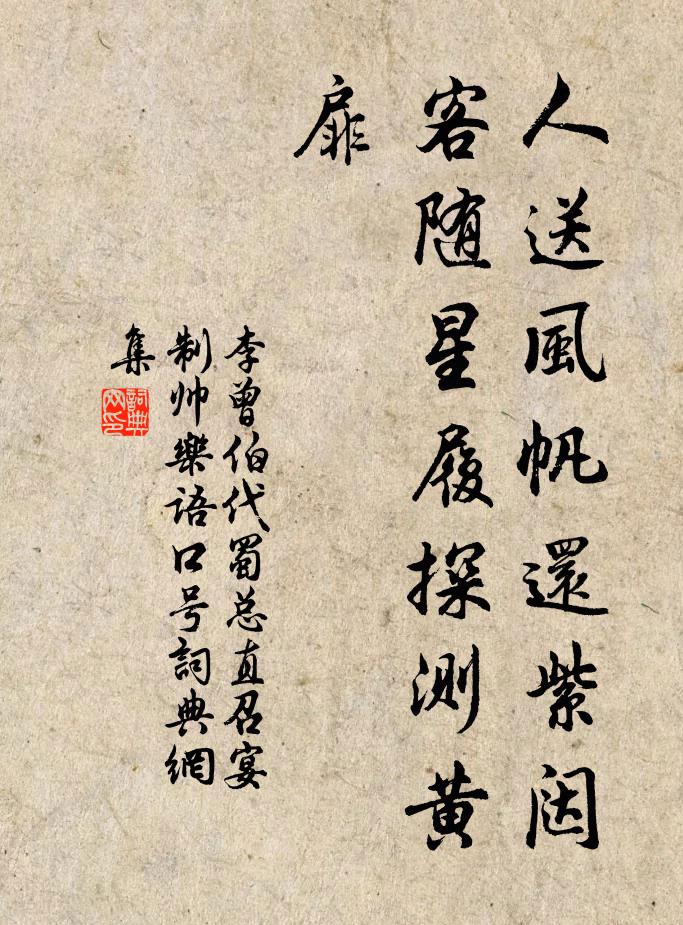 人送風帆還紫闼
客随星履探測黄
扉
李曾伯代蜀总直召宴
制帅樂語口号詞典網
集
詞典
网印